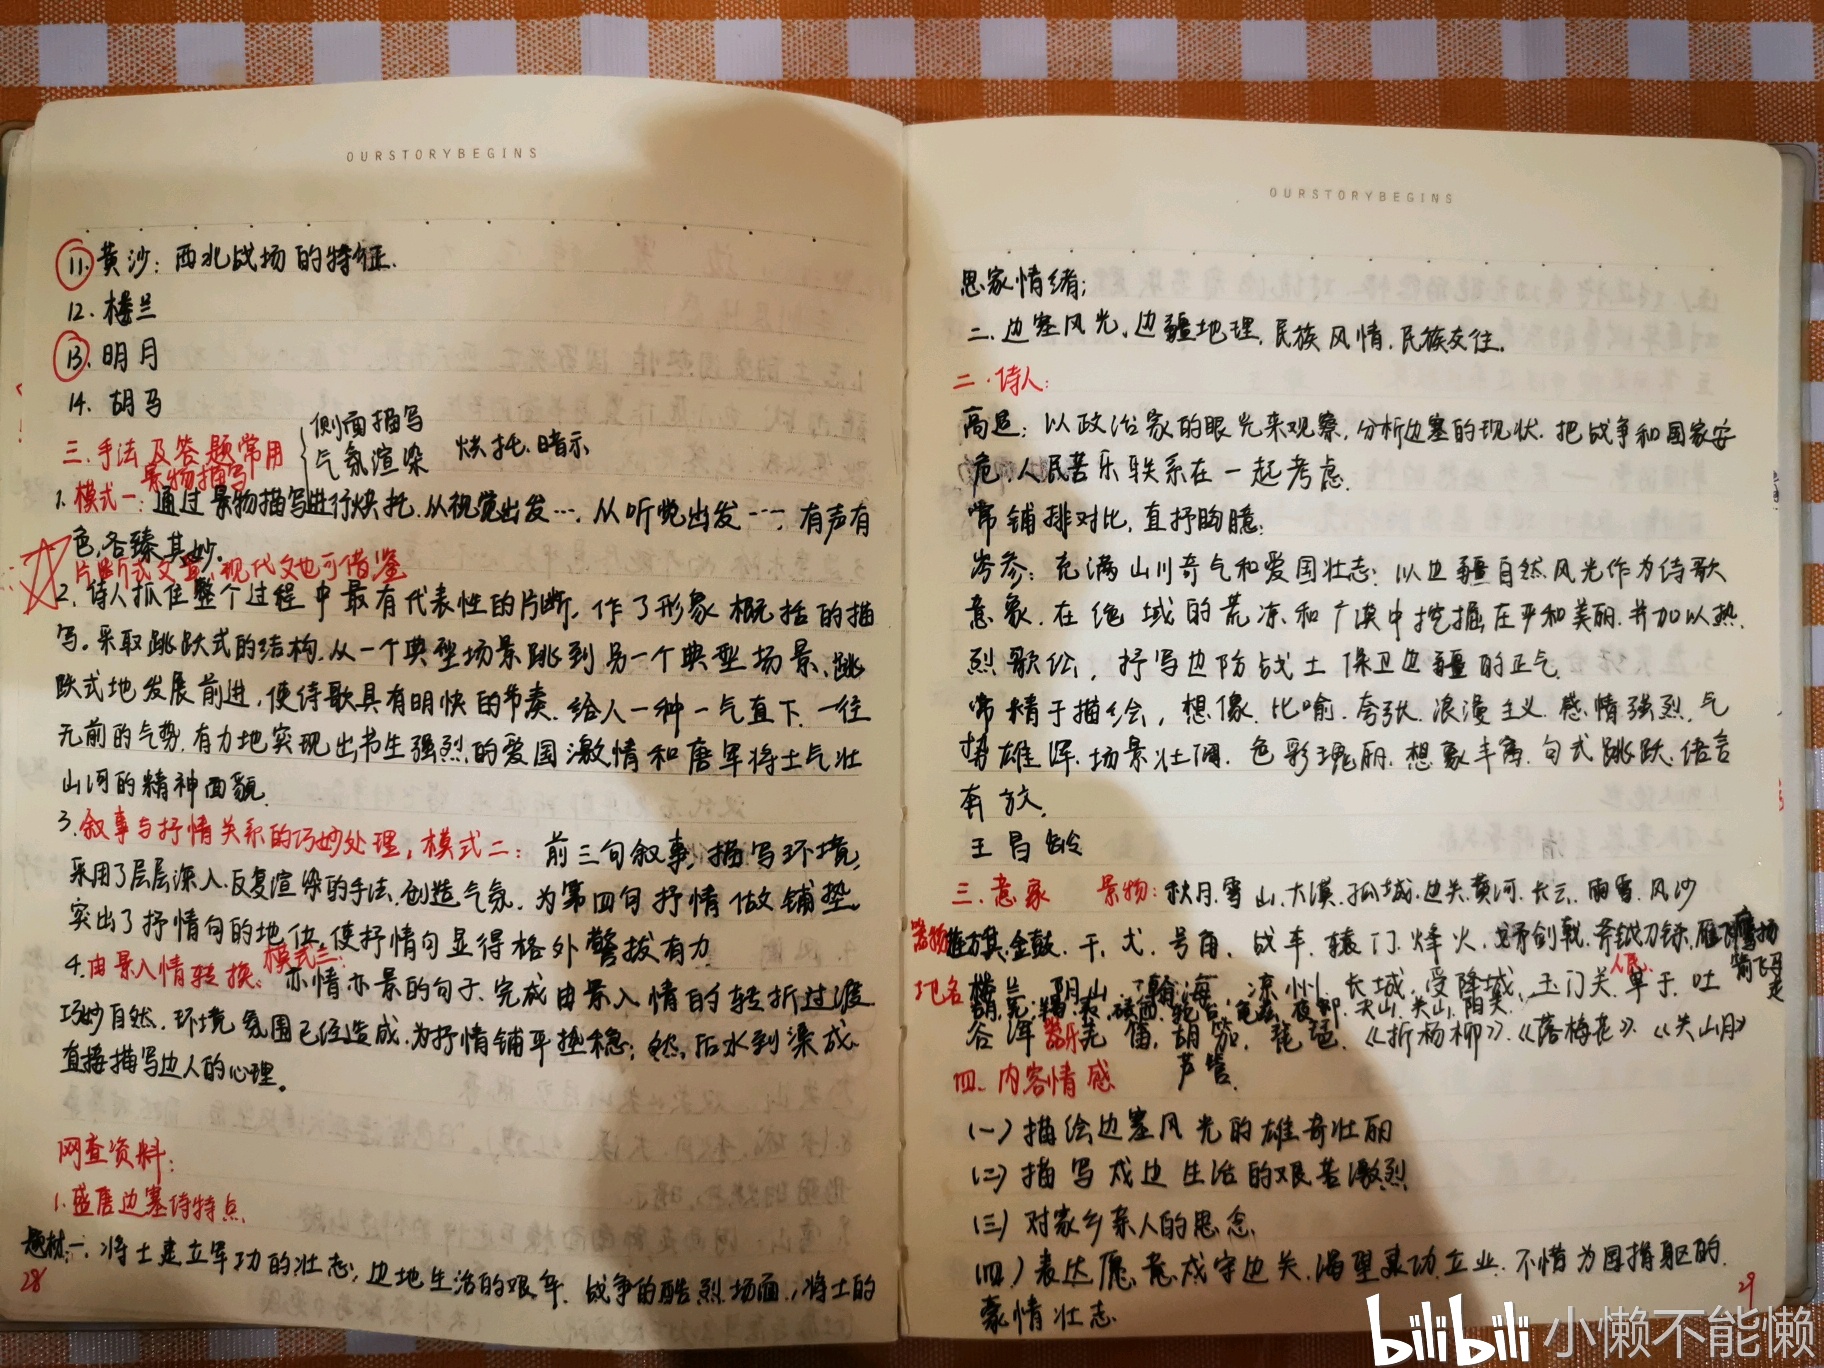 OURSTORYBEGINS
11. 黄沙：西北战场的特征.
12. 楼兰
13. 明月
14. 胡马
三.手法及答题常用 侧面描写 气氛渲染 烘托.暗示
景物描写
1. 模式一：通过景物描写进行烘托.从视觉出发…，从听觉出发…，有声有
色,各臻其妙。
片断式文章,现代文也可借鉴
2. 诗人抓住整个过程中最有代表性的片断，作了形象概括的描
写。采取跳跃式的结构.从一个典型场景跳到另一个典型场景、跳
跃式地发展前进，使诗歌具有明快的节奏.给人一种一气直下.一往
无前的气势.有力地实现出书生强烈的爱国激情和唐军将士气壮
山河的精神面貌.
3.叙事与抒情关系的巧妙处理，模式二：前三句叙事,描写环境,
采用了层层深入.反复渲染的手法.创造气氛.为第四句抒情做铺垫.
突出了抒情句的地位.使抒情句显得格外警拔有力
4.由景入情转换：模式三：亦情亦景的句子.完成由景入情的转折过渡
巧妙自然.环境氛围已经造成,为抒情铺平垫稳；然后水到渠成.
直接描写边人的心理。
网查资料：
1.盛唐边塞诗特点
题材：一.将士建立军功的壮志，边地生活的艰辛.战争的酷烈场面.，将士的
28
OURSTORYBEGINS
思家情绪；
二.边塞风光,边疆地理.民族风情.民族交往.
二.诗人：
高适：以政治家的眼光来观察.分析边塞的现状.把战争和国家安
危.人民苦乐联系在一起考虑.
常铺排对比,直抒胸臆；
岑参：充满山川奇气和爱国壮志.以边疆自然风光作为诗歌
意象.在绝域的荒凉和广漠中挖掘庄平和美丽.并加以热
烈歌讼，抒写边防战士保卫边疆的正气
常精于描绘，想像.比喻.夸张.浪漫主义.感情强烈.气
势雄浑.场景壮阔.色彩瑰丽.想象丰富.句式跳跃.语言
奔放.
王昌龄
三.意象 景物：秋月.雪山.大漠.孤城.边关.黄河.长云.雨雪.风沙
器物 旌旗.金鼓.干.戈.号角.战车.辕门.烽火.矛剑戟.斧钺刀铩.
地名 楼兰.阴山.瀚海.凉州.长城.受降城.玉门关. 人民. 单于.吐
谷浑 器乐 羌笛.胡笳.琵琶.《折杨柳》.《落梅花》.《关山月》
芦管.
四.内容情感
(一)描绘边塞风光的雄奇壮丽
(二)描写戍边生活的艰苦激烈
(三)对家乡亲人的思念.
(四)表达愿意戍守边关.渴望建功立业.不惜为国捐躯的
豪情壮志.
29
bilibili 小懒不能懒